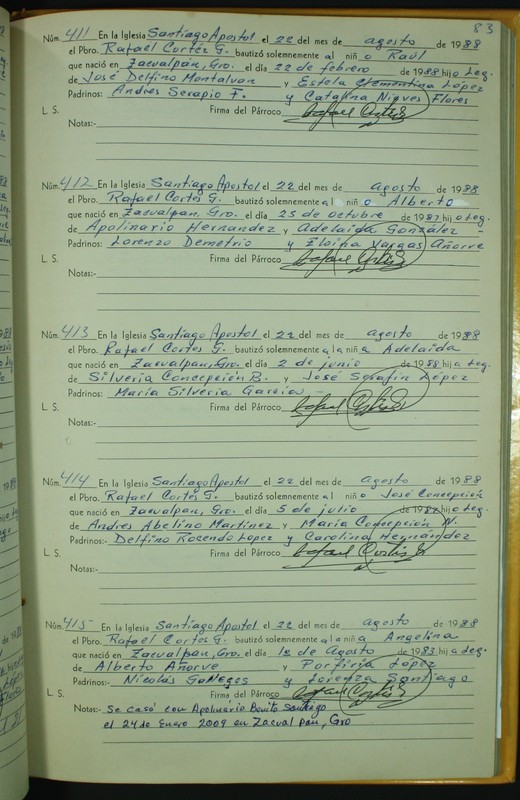 83
Núm. 411 En la Iglesia Santiago Apostol el 22 del mes de agosto de 1988
el Pbro. Rafael Cortés G. bautizó solemnemente al niño Raúl
que nació en Zacualpán, Gro. el día 22 de febrero de 1988 hijo Leg.
de José Delfino Montalvan y Estela Clementina López
Padrinos: Andres Serapio F. y Catalina Nieves Flores
L. S. Firma del Párroco Rafael Cortés G.
Notas:-
Núm. 412 En la Iglesia Santiago Apostol el 22 del mes de agosto de 1988
el Pbro. Rafael Cortés G. bautizó solemnemente al niño Alberto
que nació en Zacualpan, Gro. el día 25 de octubre de 1987 hijo Leg.
de Apolinario Hernandez y Adelaida González -
Padrinos: Lorenzo Demetrio y Eloina Vargas Añorve
L. S. Firma del Párroco Rafael Cortés G.
Notas:-
Núm. 413 En la Iglesia Santiago Apostol el 22 del mes de agosto de 1988
el Pbro. Rafael Cortés G. bautizó solemnemente a la niña Adelaida
que nació en Zacualpan, Gro. el día 2 de junio de 1988 hija Leg.
de Silveria Concepción B. y José Serafin López
Padrinos: Maria Silveria García
L. S. Firma del Párroco Rafael Cortés G.
Notas:-
Núm. 414 En la Iglesia Santiago Apostol el 22 del mes de agosto de 1988
el Pbro. Rafael Cortés G. bautizó solemnemente al niño José Concepción
que nació en Zacualpan, Gro. el día 5 de julio de 1987 hijo Leg.
de Andres Abelino Martinez y María Concepción N.
Padrinos:- Delfino Rosendo Lopez y Carolina Hernández
L. S. Firma del Párroco Rafael Cortés G.
Notas:-
Núm. 415- En la Iglesia Santiago Apostol el 22 del mes de agosto de 1988
el Pbro. Rafael Cortes G. bautizó solemnemente a la niña Angelina
que nació en Zacualpán, Gro. el día 1º de Agosto de 1983 hija Leg.
de Alberto Añorve y Porfiria López
Padrinos:- Nicolás y Lorenza Santiago
L. S. Firma del Párroco Rafael Cortés G.
Notas:- Se casó con Apolinario Benito Santiago
el 24 de Enero 2009 en Zacualpan, Gro